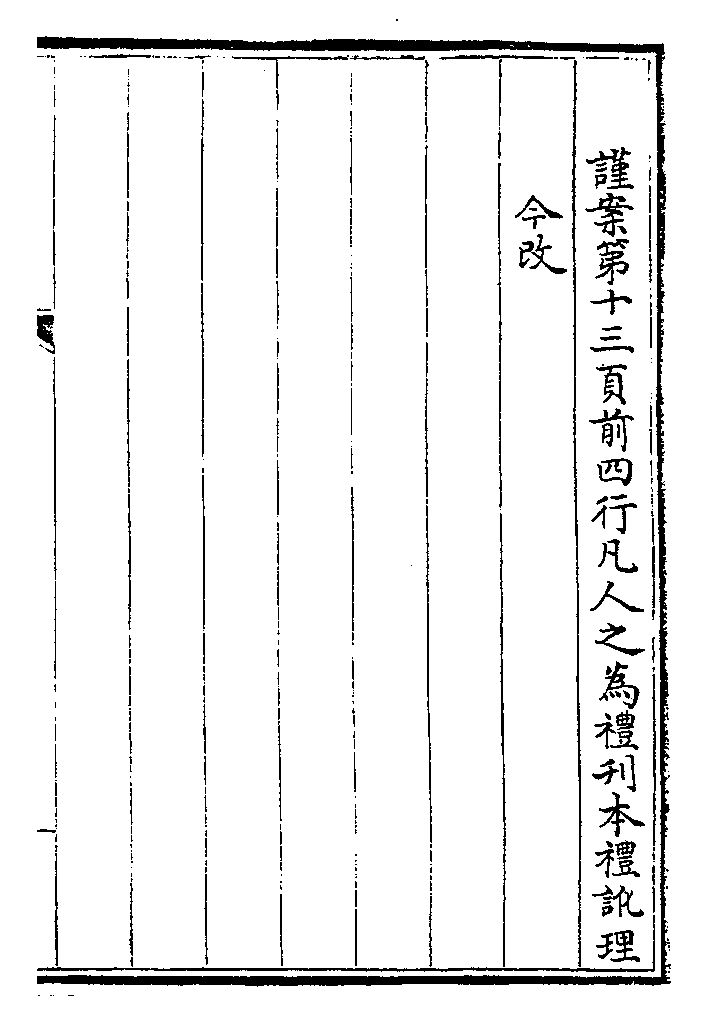 謹案第十三頁前四行凡人之為禮刊本禮訛理
今改